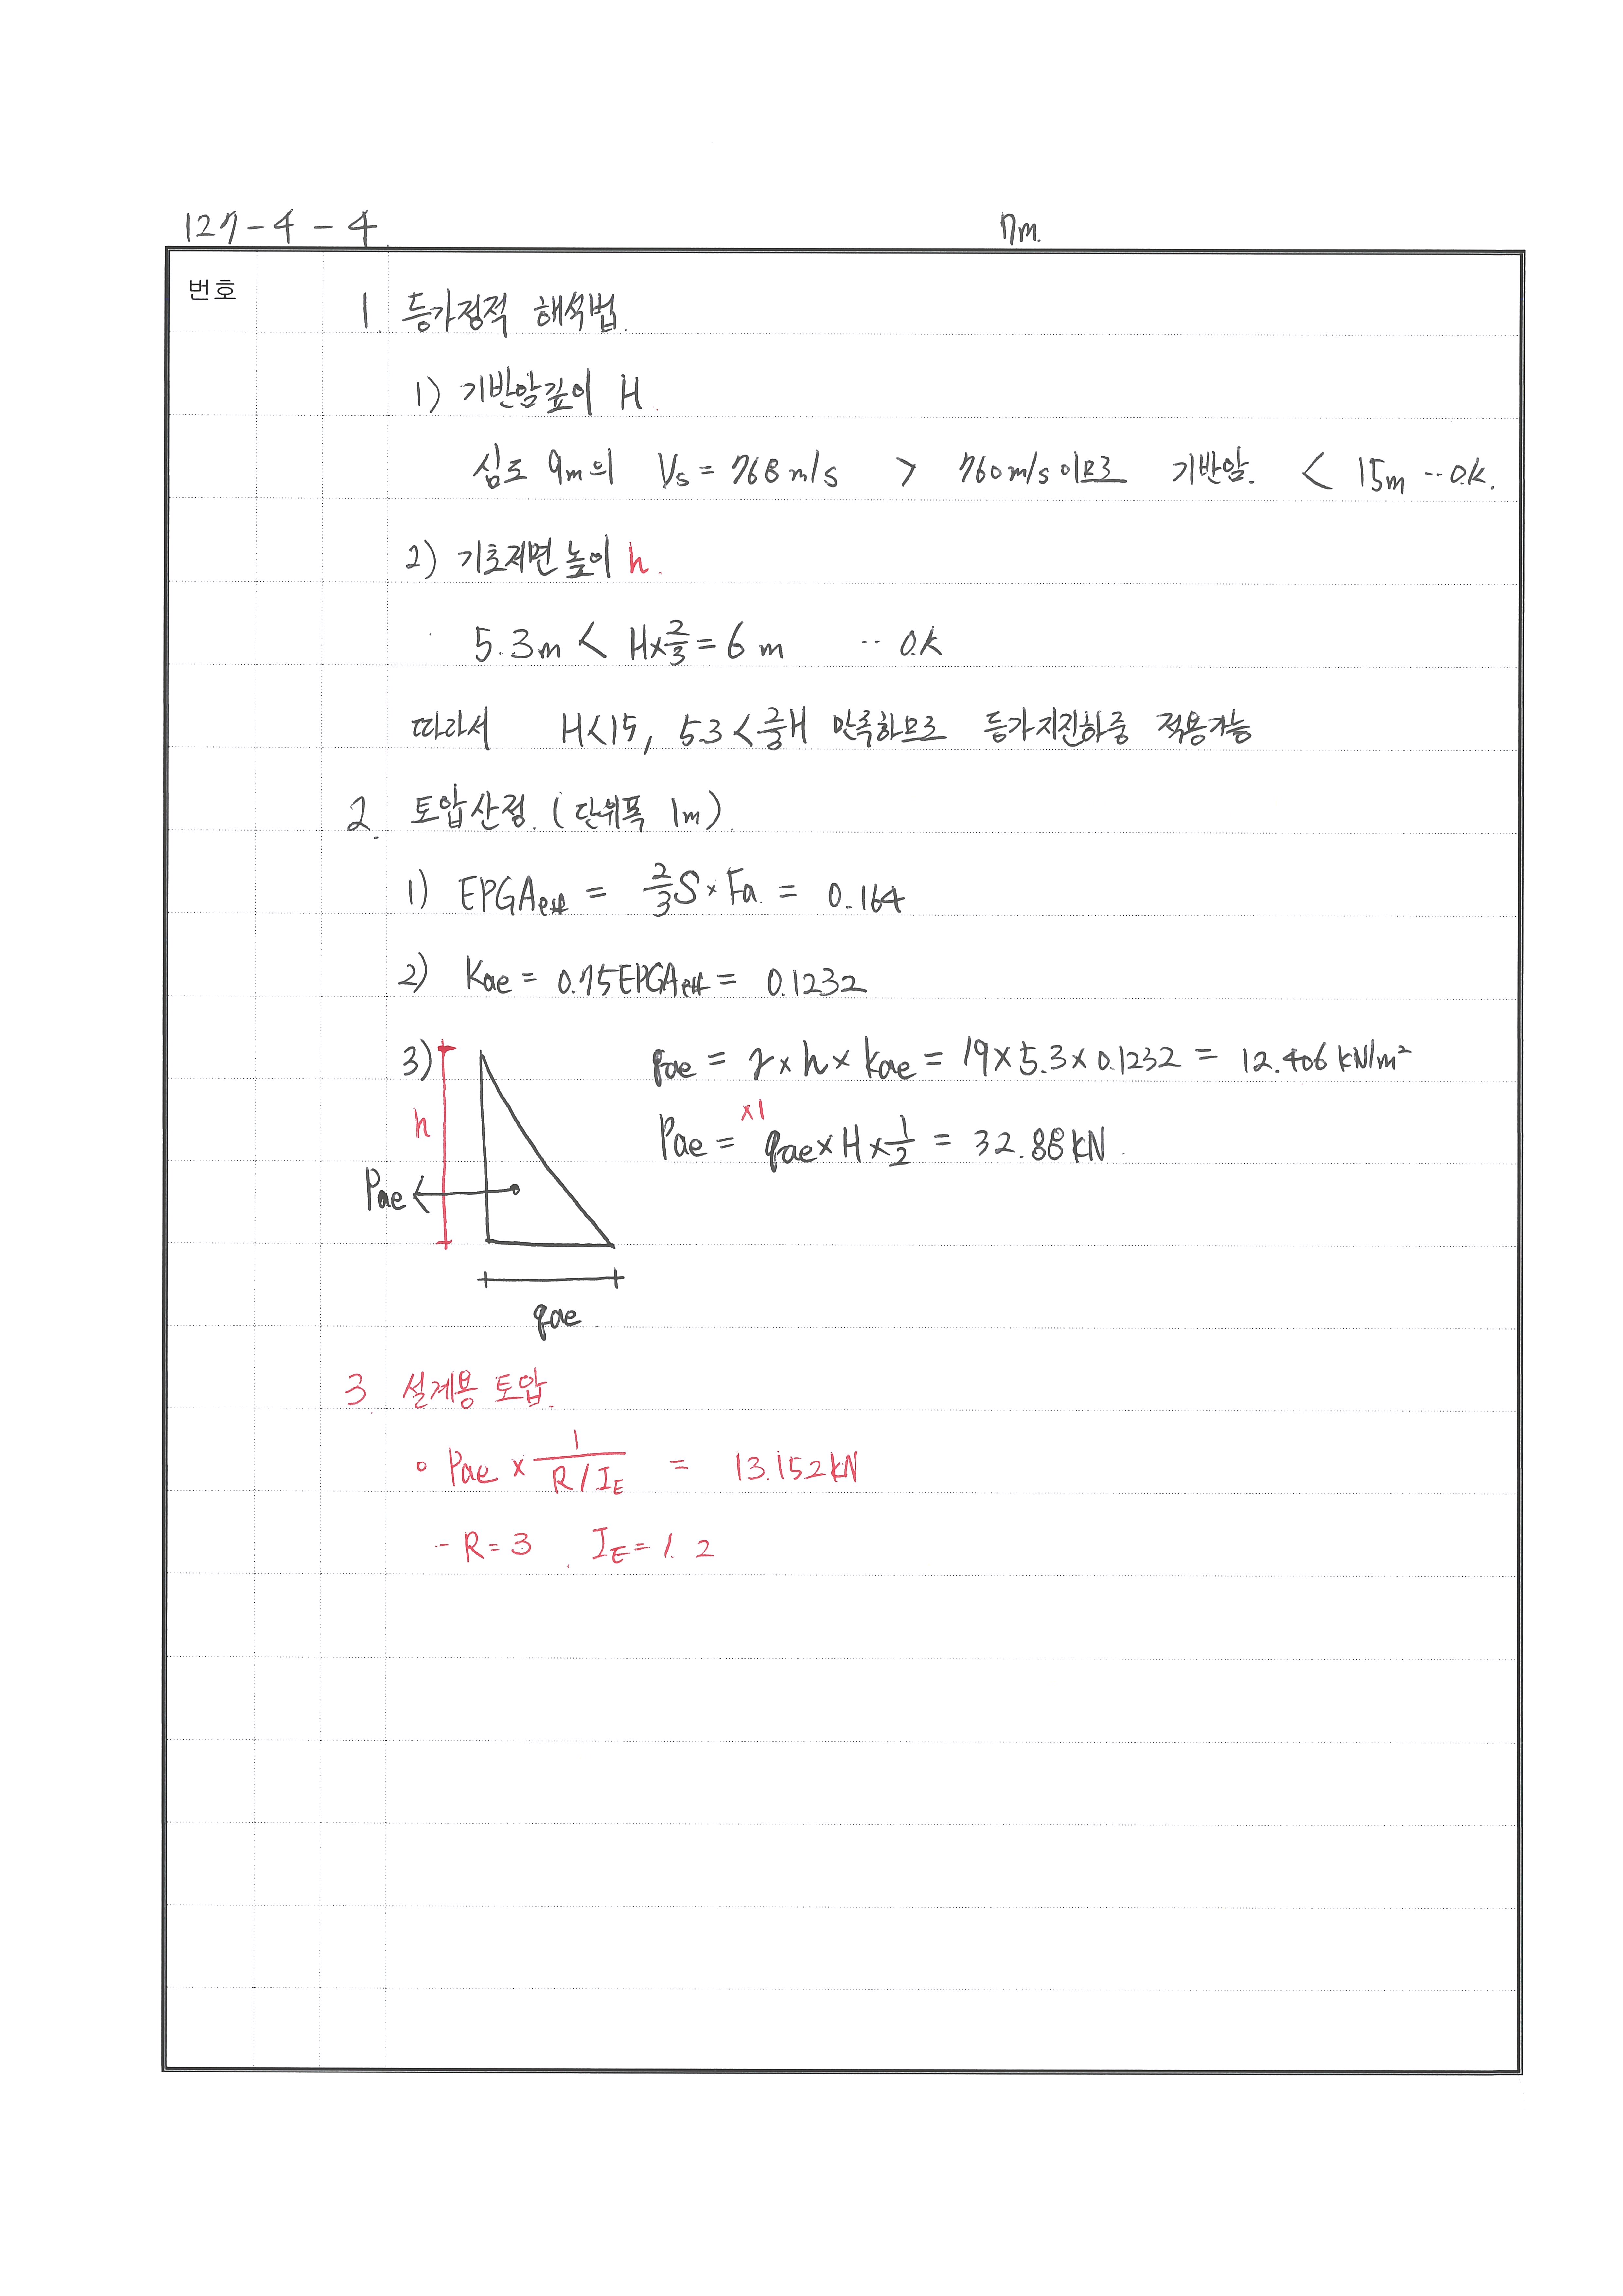 127-4-4 7m.
번호
1. 등가정적 해석법.
1) 기반암깊이 H.
심도 9m의 Vs = 768 m/s > 760 m/s 이므로 기반암. < 15m -- O.K.
2) 기초저면 높이 h.
5.3m < H×2/3 = 6 m -- O.K
따라서 H<15, 5.3<2/3H 만족하므로 등가지진하중 적용가능
2. 토압산정. (단위폭 1m).
1) EPGAeff = 2/3 S × Fa. = 0.164
2) Kae = 0.75EPGAeff = 0.1232
3) qae = γ × h × kae = 19 × 5.3 × 0.1232 = 12.406 kN/m²
×1
h Pae = qae × H × 1/2 = 32.88 kN.
Pae
qae
3. 설계용 토압.
∘ Pae × 1/(R/IE) = 13.152 kN
- R = 3 , IE = 1.2